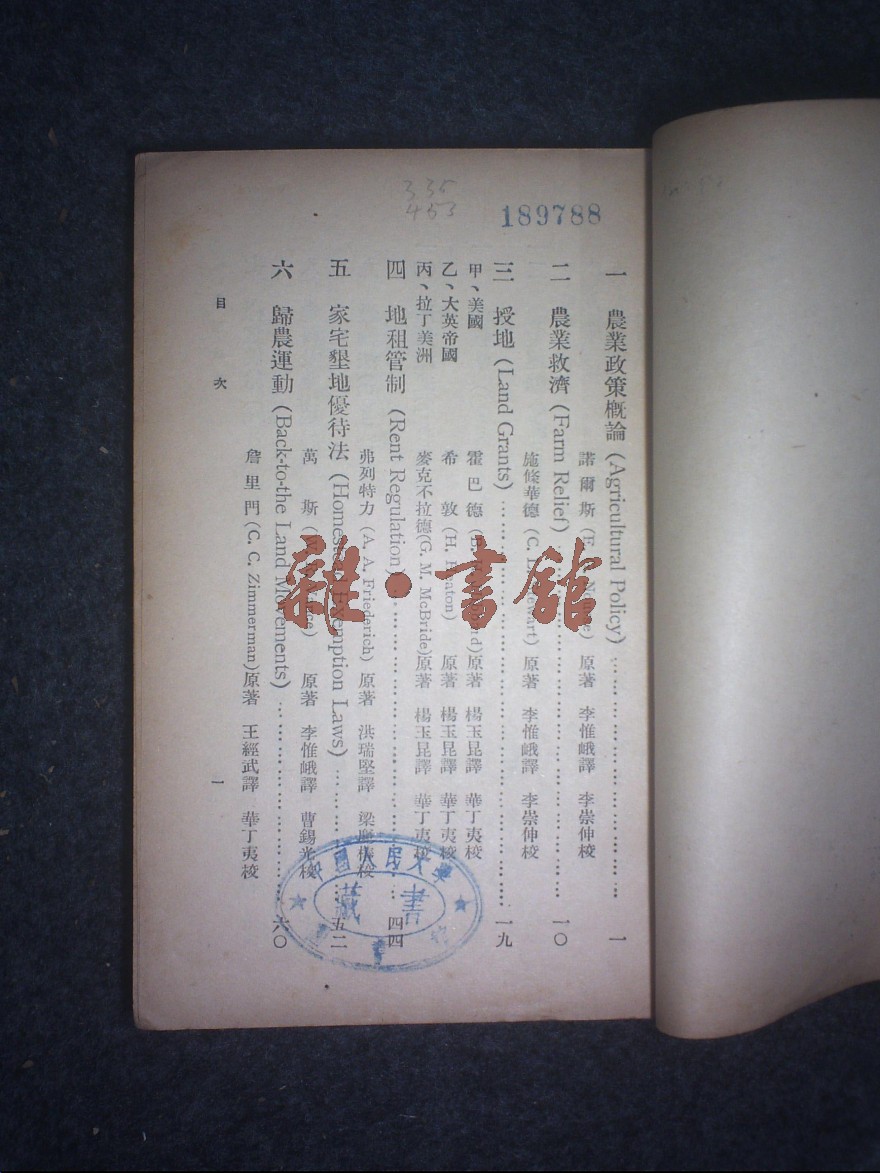 335
453
189788
一 農業政策概論 (Agricultural Policy) …… 一
諾爾斯 原著 李惟峨譯 李崇伸校
二 農業救濟 (Farm Relief) …… 一〇
施條華德 (C. L. Stewart) 原著 李惟峨譯 李崇伸校
三 授地 (Land Grants) …… 一九
甲、美國 霍巴德 原著 楊玉昆譯 華丁夷校
乙、大英帝國 希敦 (H. Heaton) 原著 楊玉昆譯 華丁夷校
丙、拉丁美洲 麥克不拉德 (G. M. McBride) 原著 楊玉昆譯 華丁夷校
四 地租管制 (Rent Regulation) …… 四四
弗列特力 (A. A. Friederich) 原著 洪瑞堅譯 梁慶椿校
五 家宅墾地優待法 (Homestead Exemption Laws) …… 五二
萬斯 原著 李惟峨譯 曹錫光校
六 歸農運動 (Back-to-the Land Movements) …… 六〇
詹里門 (C. C. Zimmerman) 原著 王經武譯 華丁夷校
目次
一
雜·書館
國人民大學
藏書